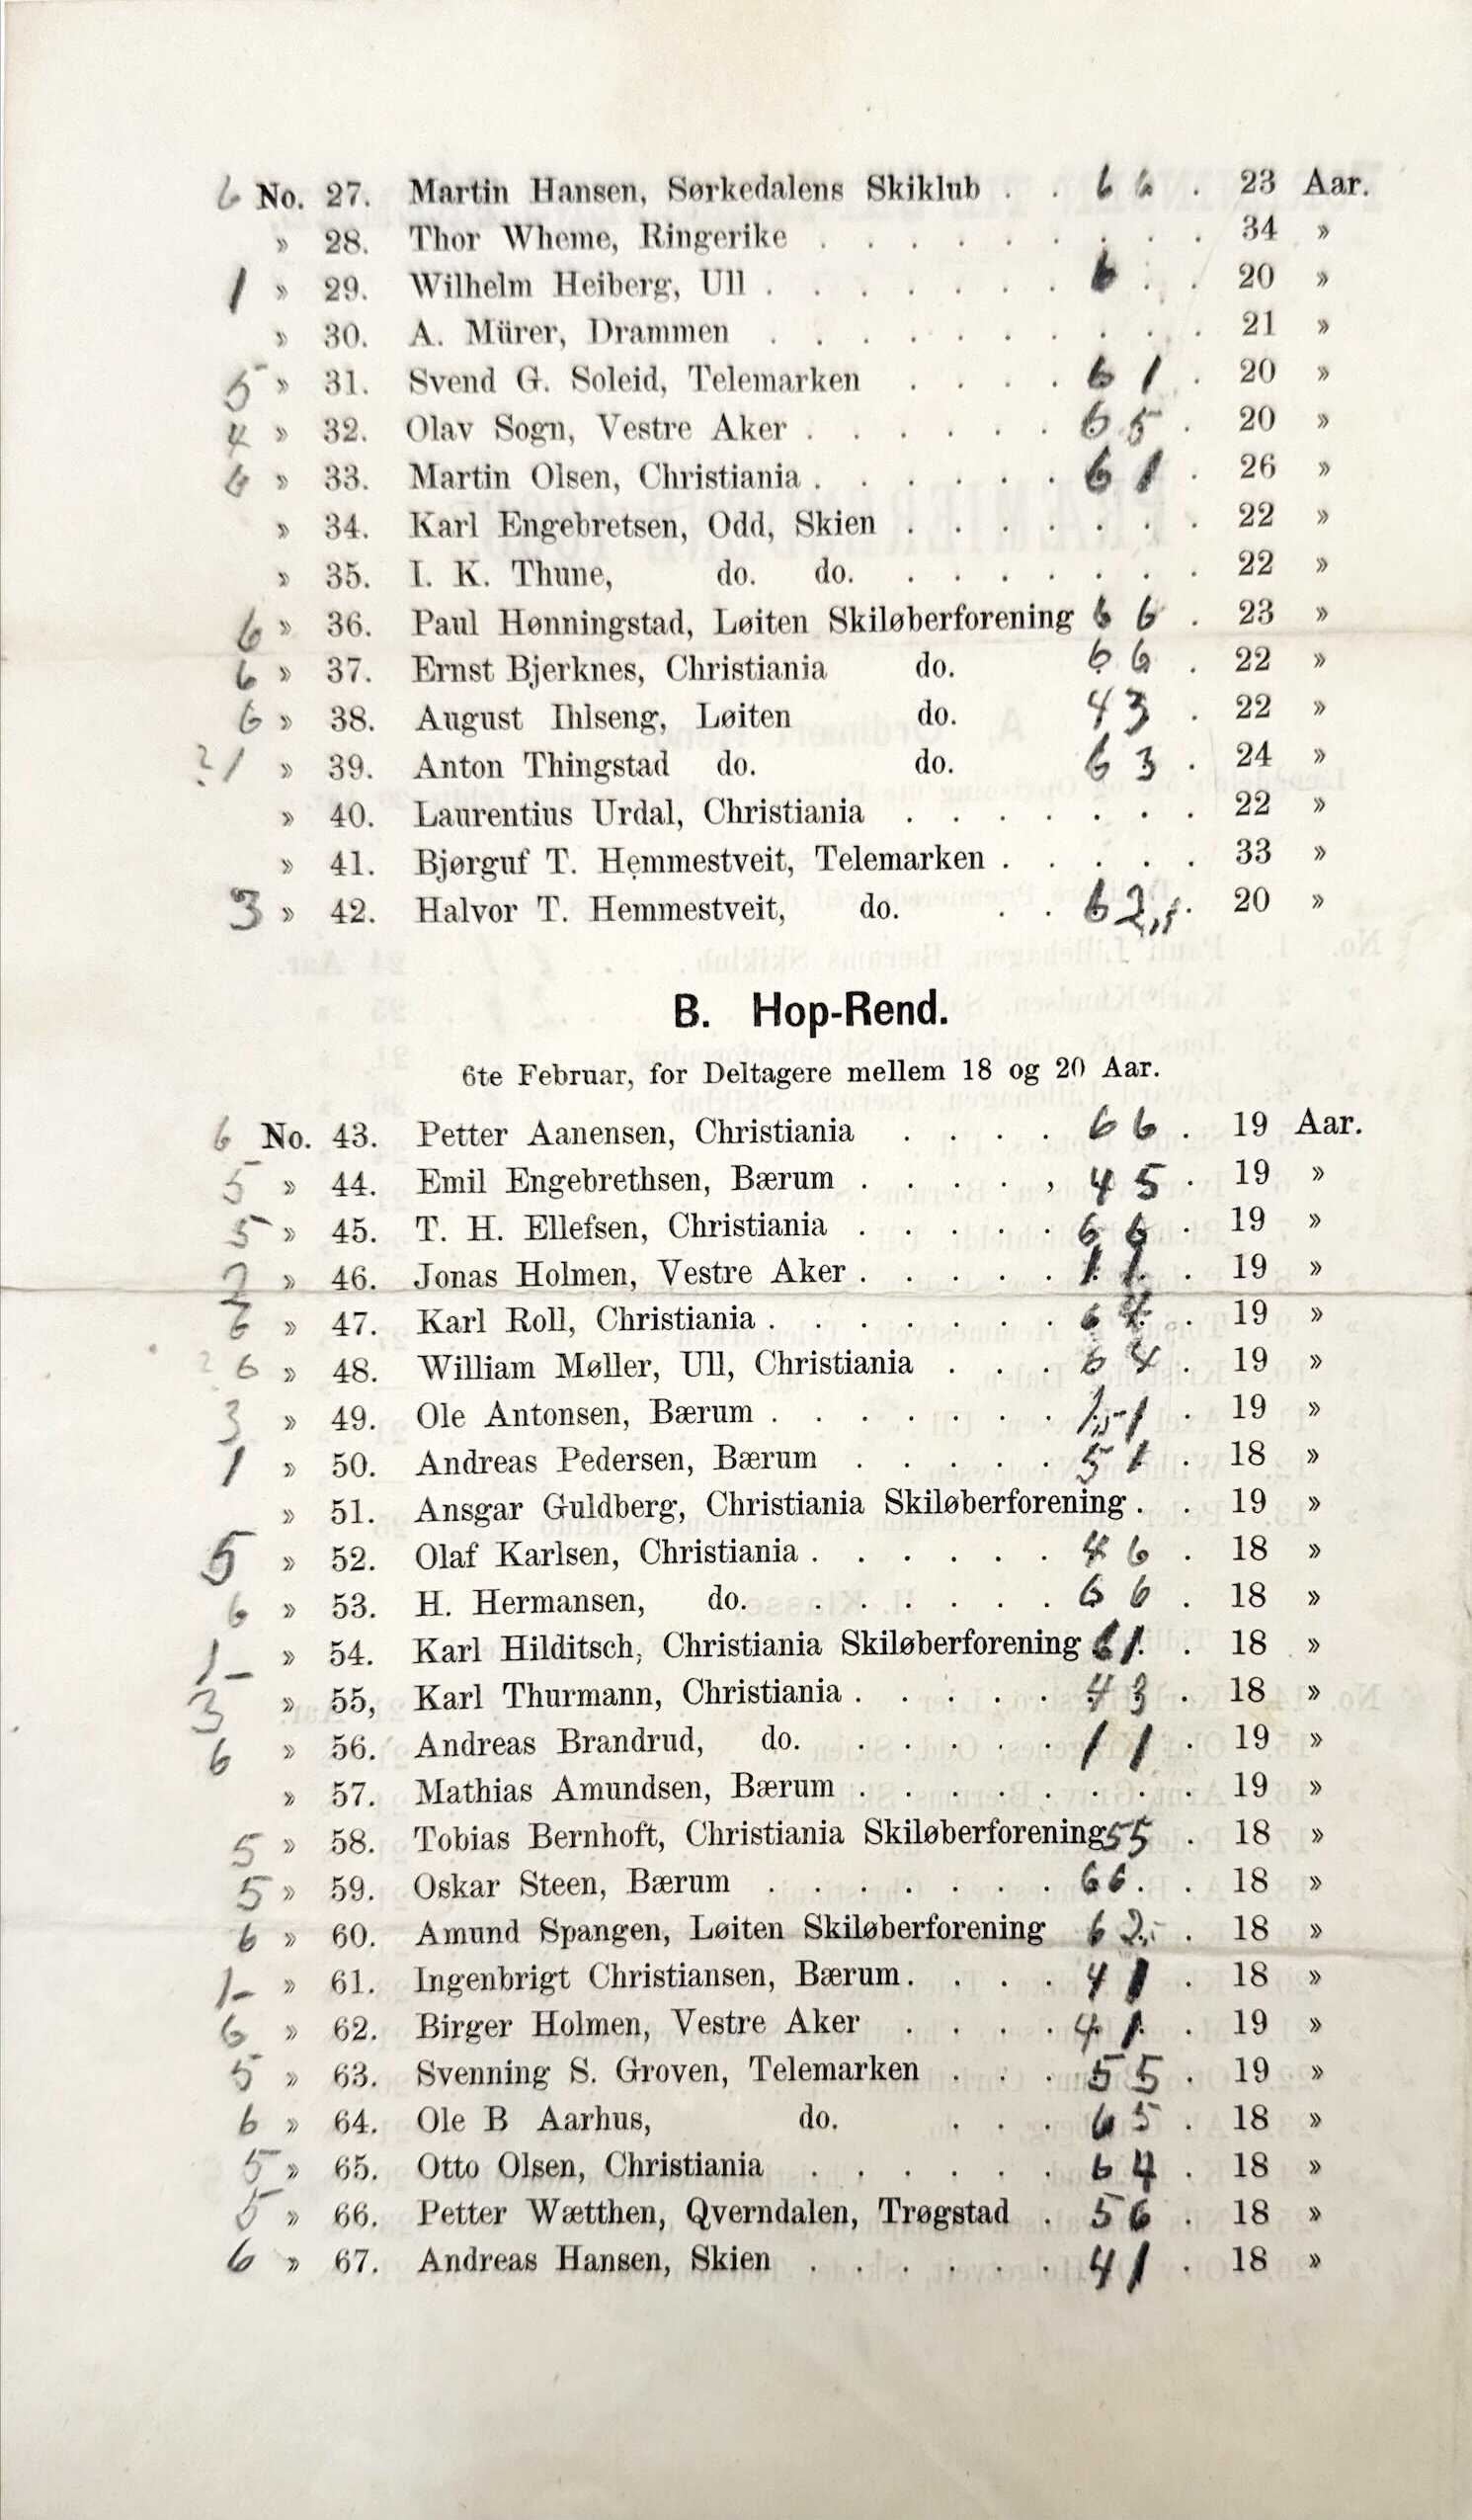 6 No. 27. Martin Hansen, Sørkedalens Skiklub . . 6 6 . 23 Aar.
» 28. Thor Wheme, Ringerike . . . . . . . . . 34 »
1 » 29. Wilhelm Heiberg, Ull . . . . . . . 6 . . 20 »
» 30. A. Mürer, Drammen . . . . . . . . . . 21 »
5 » 31. Svend G. Soleid, Telemarken . . . . 6 1 . 20 »
4 » 32. Olav Sogn, Vestre Aker . . . . . . 6 5 . 20 »
6 » 33. Martin Olsen, Christiania . . . . . . 6 1 . 26 »
» 34. Karl Engebretsen, Odd, Skien . . . . . . . 22 »
» 35. I. K. Thune, do. do. . . . . . . . 22 »
6 » 36. Paul Hønningstad, Løiten Skiløberforening 6 6 . 23 »
6 » 37. Ernst Bjerknes, Christiania do. 6 6 . 22 »
6 » 38. August Ihlseng, Løiten do. 4 3 . 22 »
? 1 » 39. Anton Thingstad do. do. 6 3 . 24 »
» 40. Laurentius Urdal, Christiania . . . . . . . 22 »
» 41. Bjørguf T. Hemmestveit, Telemarken . . . . . 33 »
3 » 42. Halvor T. Hemmestveit, do. . . 6 2 . 20 »
B. Hop-Rend.
6te Februar, for Deltagere mellem 18 og 20 Aar.
6 No. 43. Petter Aanensen, Christiania . . . . 6 6 . 19 Aar.
5 » 44. Emil Engebrethsen, Bærum . . . . , 4 5 . 19 »
5 » 45. T. H. Ellefsen, Christiania . . . . . 6 6 . 19 »
2 » 46. Jonas Holmen, Vestre Aker . . . . . 1 1 . 19 »
6 » 47. Karl Roll, Christiania . . . . . . . 6 4 . 19 »
? 6 » 48. William Møller, Ull, Christiania . . . 6 4 . 19 »
3 » 49. Ole Antonsen, Bærum . . . . . . . 1 1 . 19 »
1 » 50. Andreas Pedersen, Bærum . . . . . 5 1 . 18 »
» 51. Ansgar Guldberg, Christiania Skiløberforening . . 19 »
5 » 52. Olaf Karlsen, Christiania . . . . . . 4 6 . 18 »
6 » 53. H. Hermansen, do. . . . . . . 6 6 . 18 »
1- » 54. Karl Hilditsch, Christiania Skiløberforening 6 1 . 18 »
3 » 55, Karl Thurmann, Christiania . . . . . 4 3 . 18 »
6 » 56. Andreas Brandrud, do. . . . . . 1 1 . 19 »
» 57. Mathias Amundsen, Bærum . . . . . . . . 19 »
5 » 58. Tobias Bernhoft, Christiania Skiløberforening 5 5 . 18 »
5 » 59. Oskar Steen, Bærum . . . . . . . 6 6 . . 18 »
6 » 60. Amund Spangen, Løiten Skiløberforening 6 2 . 18 »
1- » 61. Ingenbrigt Christiansen, Bærum . . . . 4 1 . 18 »
6 » 62. Birger Holmen, Vestre Aker . . . . 4 1 . 19 »
5 » 63. Svenning S. Groven, Telemarken . . . 5 5 . 19 »
6 » 64. Ole B Aarhus, do. . . . 6 5 . 18 »
5 » 65. Otto Olsen, Christiania . . . . . . 6 4 . 18 »
5 » 66. Petter Wætthen, Qverndalen, Trøgstad . 5 6 . 18 »
6 » 67. Andreas Hansen, Skien . . . . . . 4 1 . 18 »